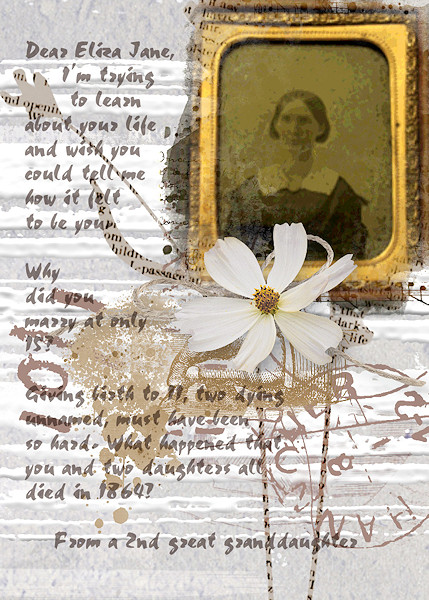 Dear Eliza Jane,
I'm trying
to learn
about your life
and wish you
could tell me
how it felt
to be you.
Why
did you
marry at only
15?
Giving birth to 11, two dying
unnamed, must have been
so hard. What happened that
you and two daughters all
died in 1864?
From a 2nd great granddaughter
and opening
passage
That
dark
life